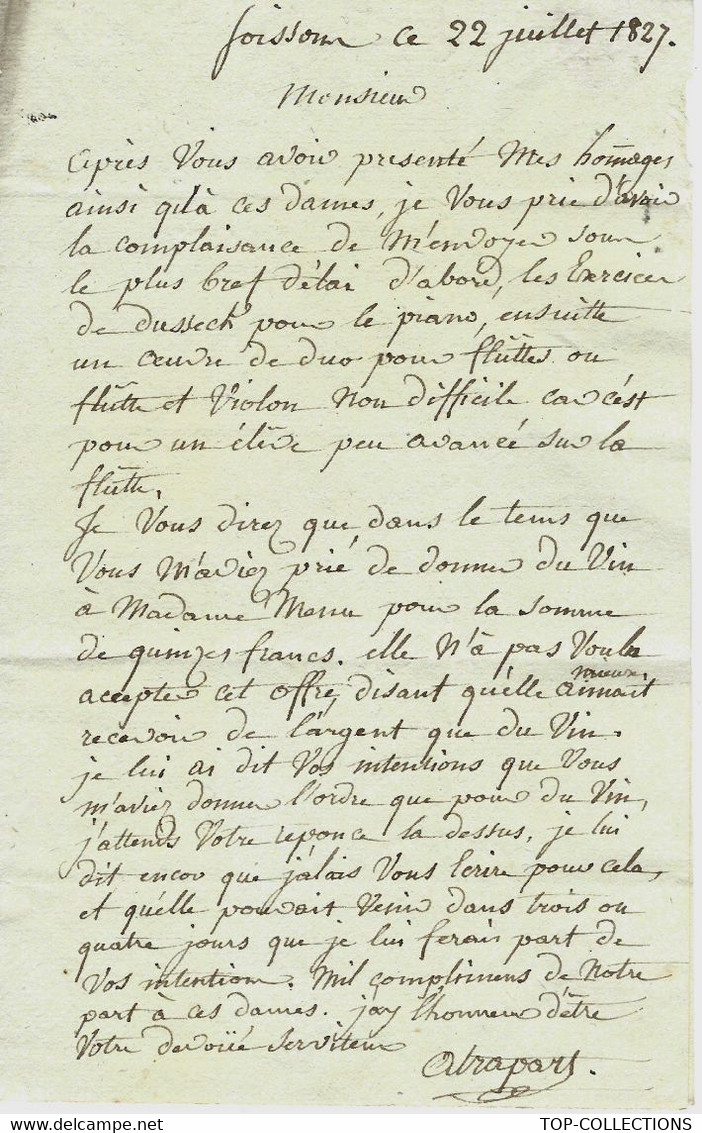 Soissons ce 22 juillet 1827.
Monsieur
après Vous avoir presenté Mes homages
ainsi q'à ces dames, je Vous prie d'avoir
la complaisance de M'envoyer sous
le plus bref délai d'abord, les Exercices
de dusseck pour le piano, ensuitte
un œuvre de duo pour flûttes ou
flûtte et Violon Non difficile car c'ést
pour un élève peu avancé sur la
flûtte.
Je Vous direz que, dans le tems que
Vous M'aviez prié de donner du Vin
à Madame Menu pour la somme
de quinzes francs. elle N'à pas Voulu
accepter cet offre, disant qu'élle aimait mieux
recevoir de l'argent que du Vin.
je lui ai dit Vos intentions que Vous
m'aviez donner l'ordre que pour du Vin,
j'attends Votre reponce la dessus, je lui
dit encor que j'alais Vous Ecrire pour cela,
et qu'élle pouvait Venir dans trois ou
quatre jours que je lui ferais part de
Vos intention. Mil complimens de Notre
part à ces dames. j'ay l'honneur d'être
Votre devoüé serviteur
TOP-COLLECTIONS